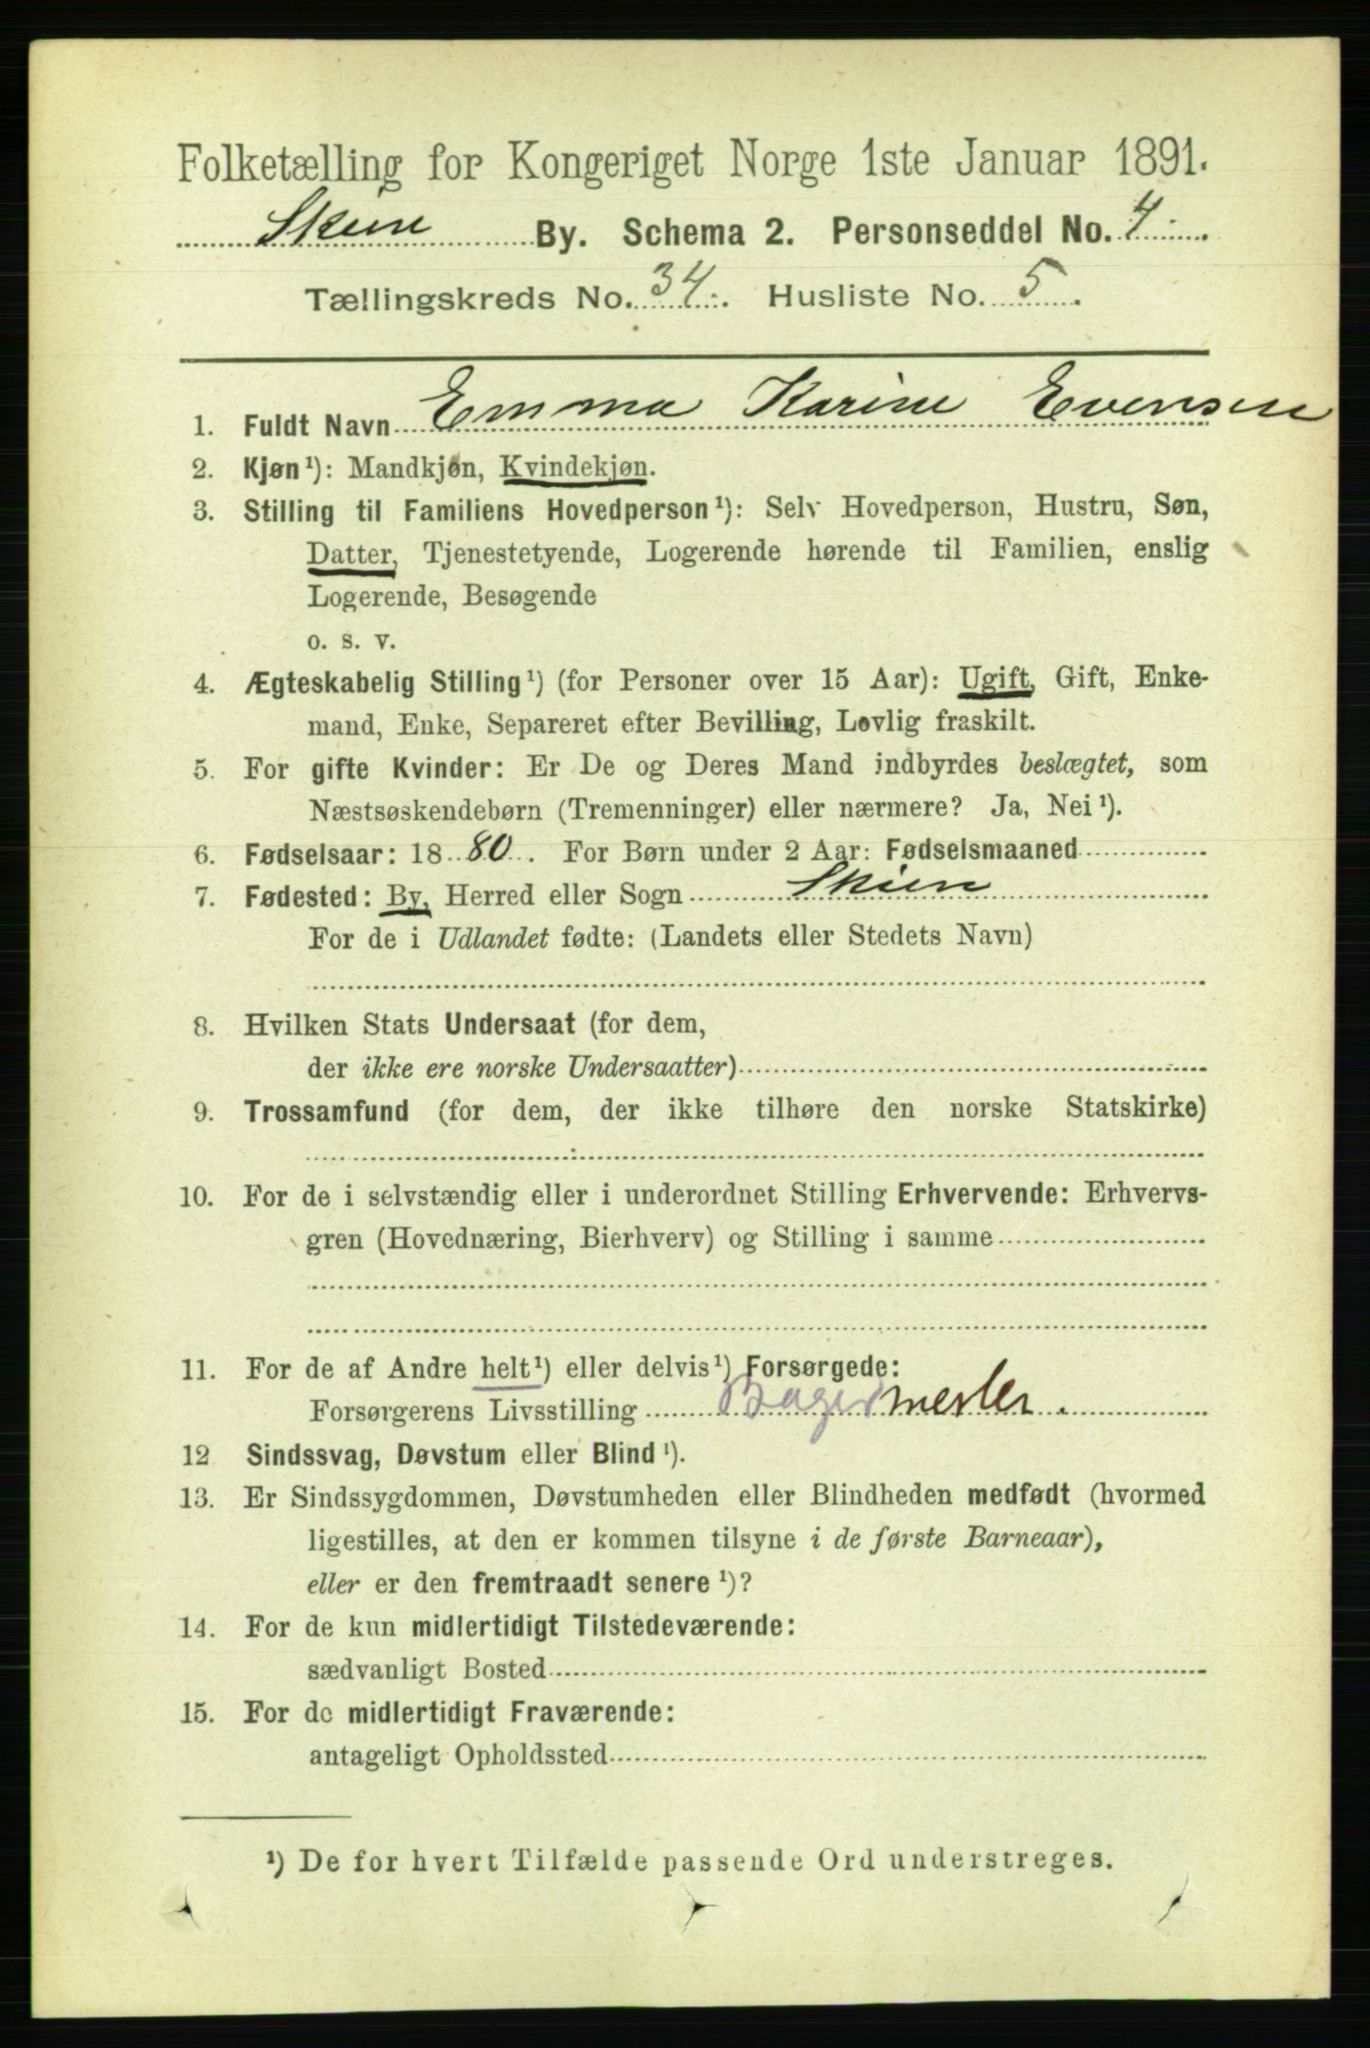 Folketælling for Kongeriget Norge 1ste Januar 1891.
Skien By. Schema 2. Personseddel No. 4.
Tællingskreds No. 34. Husliste No. 5.
1. Fuldt Navn Emma Karine Evensen
2. Kjøn¹): Mandkjøn, Kvindekjøn.
3. Stilling til Familiens Hovedperson¹): Selv Hovedperson, Hustru, Søn,
Datter, Tjenestetyende, Logerende hørende til Familien, enslig
Logerende, Besøgende
o. s. v.
4. Ægteskabelig Stilling¹) (for Personer over 15 Aar): Ugift, Gift, Enke-
mand, Enke, Separeret efter Bevilling, Lovlig fraskilt.
5. For gifte Kvinder: Er De og Deres Mand indbyrdes beslægtet, som
Næstsøskendebørn (Tremenninger) eller nærmere? Ja, Nei¹).
6. Fødselsaar: 1880. For Børn under 2 Aar: Fødselsmaaned
7. Fødested: By, Herred eller Sogn Skien
For de i Udlandet fødte: (Landets eller Stedets Navn)
8. Hvilken Stats Undersaat (for dem,
der ikke ere norske Undersaatter)
9. Trossamfund (for dem, der ikke tilhøre den norske Statskirke)
10. For de i selvstændig eller i underordnet Stilling Erhvervende: Erhvervs-
gren (Hovednæring, Bierhverv) og Stilling i samme
11. For de af Andre helt¹) eller delvis¹) Forsørgede:
Forsørgerens Livsstilling Bagermester.
12 Sindssvag, Døvstum eller Blind¹).
13. Er Sindssygdommen, Døvstumheden eller Blindheden medfødt (hvormed
ligestilles, at den er kommen tilsyne i de første Barneaar),
eller er den fremtraadt senere¹)?
14. For de kun midlertidigt Tilstedeværende:
sædvanligt Bosted
15. For de midlertidigt Fraværende:
antageligt Opholdssted
¹) De for hvert Tilfælde passende Ord understreges.